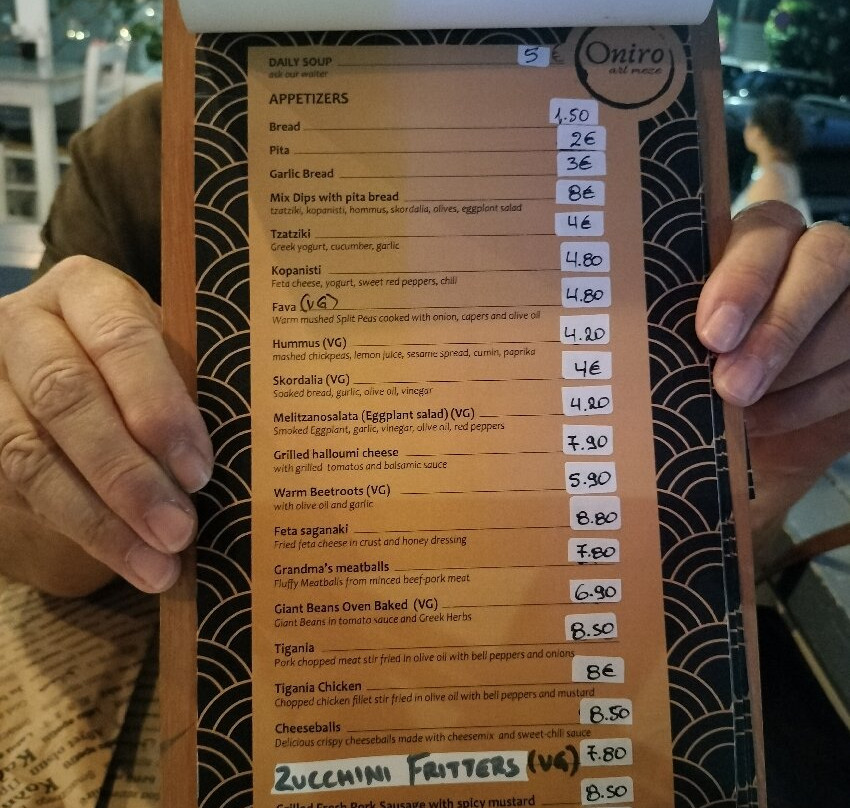 DAILY SOUP 5 €
ask our waiter
Oniro
art meze
APPETIZERS
Bread 1.50
Pita 2€
Garlic Bread 3€
Mix Dips with pita bread 8€
tzatziki, kopanisti, hommus, skordalia, olives, eggplant salad
Tzatziki 4€
Greek yogurt, cucumber, garlic
Kopanisti 4.80
Feta cheese, yogurt, sweet red peppers, chili
Fava (VG) 4.80
Warm mushed Split Peas cooked with onion, capers and olive oil
Hummus (VG) 4.20
mashed chickpeas, lemon juice, sesame spread, cumin, paprika
Skordalia (VG) 4€
Soaked bread, garlic, olive oil, vinegar
Melitzanosalata (Eggplant salad) (VG) 4.20
Smoked Eggplant, garlic, vinegar, olive oil, red peppers
Grilled halloumi cheese 7.90
with grilled tomatos and balsamic sauce
Warm Beetroots (VG) 5.90
with olive oil and garlic
Feta saganaki 8.80
Fried feta cheese in crust and honey dressing
Grandma's meatballs 7.80
Fluffy Meatballs from minced beef-pork meat
Giant Beans Oven Baked (VG) 6.90
Giant Beans in tomato sauce and Greek Herbs
Tigania 8.50
Pork chopped meat stir fried in olive oil with bell peppers and onions
Tigania Chicken 8€
Chopped chicken fillet stir fried in olive oil with bell peppers and mustard
Cheeseballs 8.50
Delicious crispy cheeseballs made with cheesemix and sweet-chili sauce
ZUCCHINI FRITTERS (VG) 7.80
Grilled Fresh Pork Sausage with spicy mustard 8.50